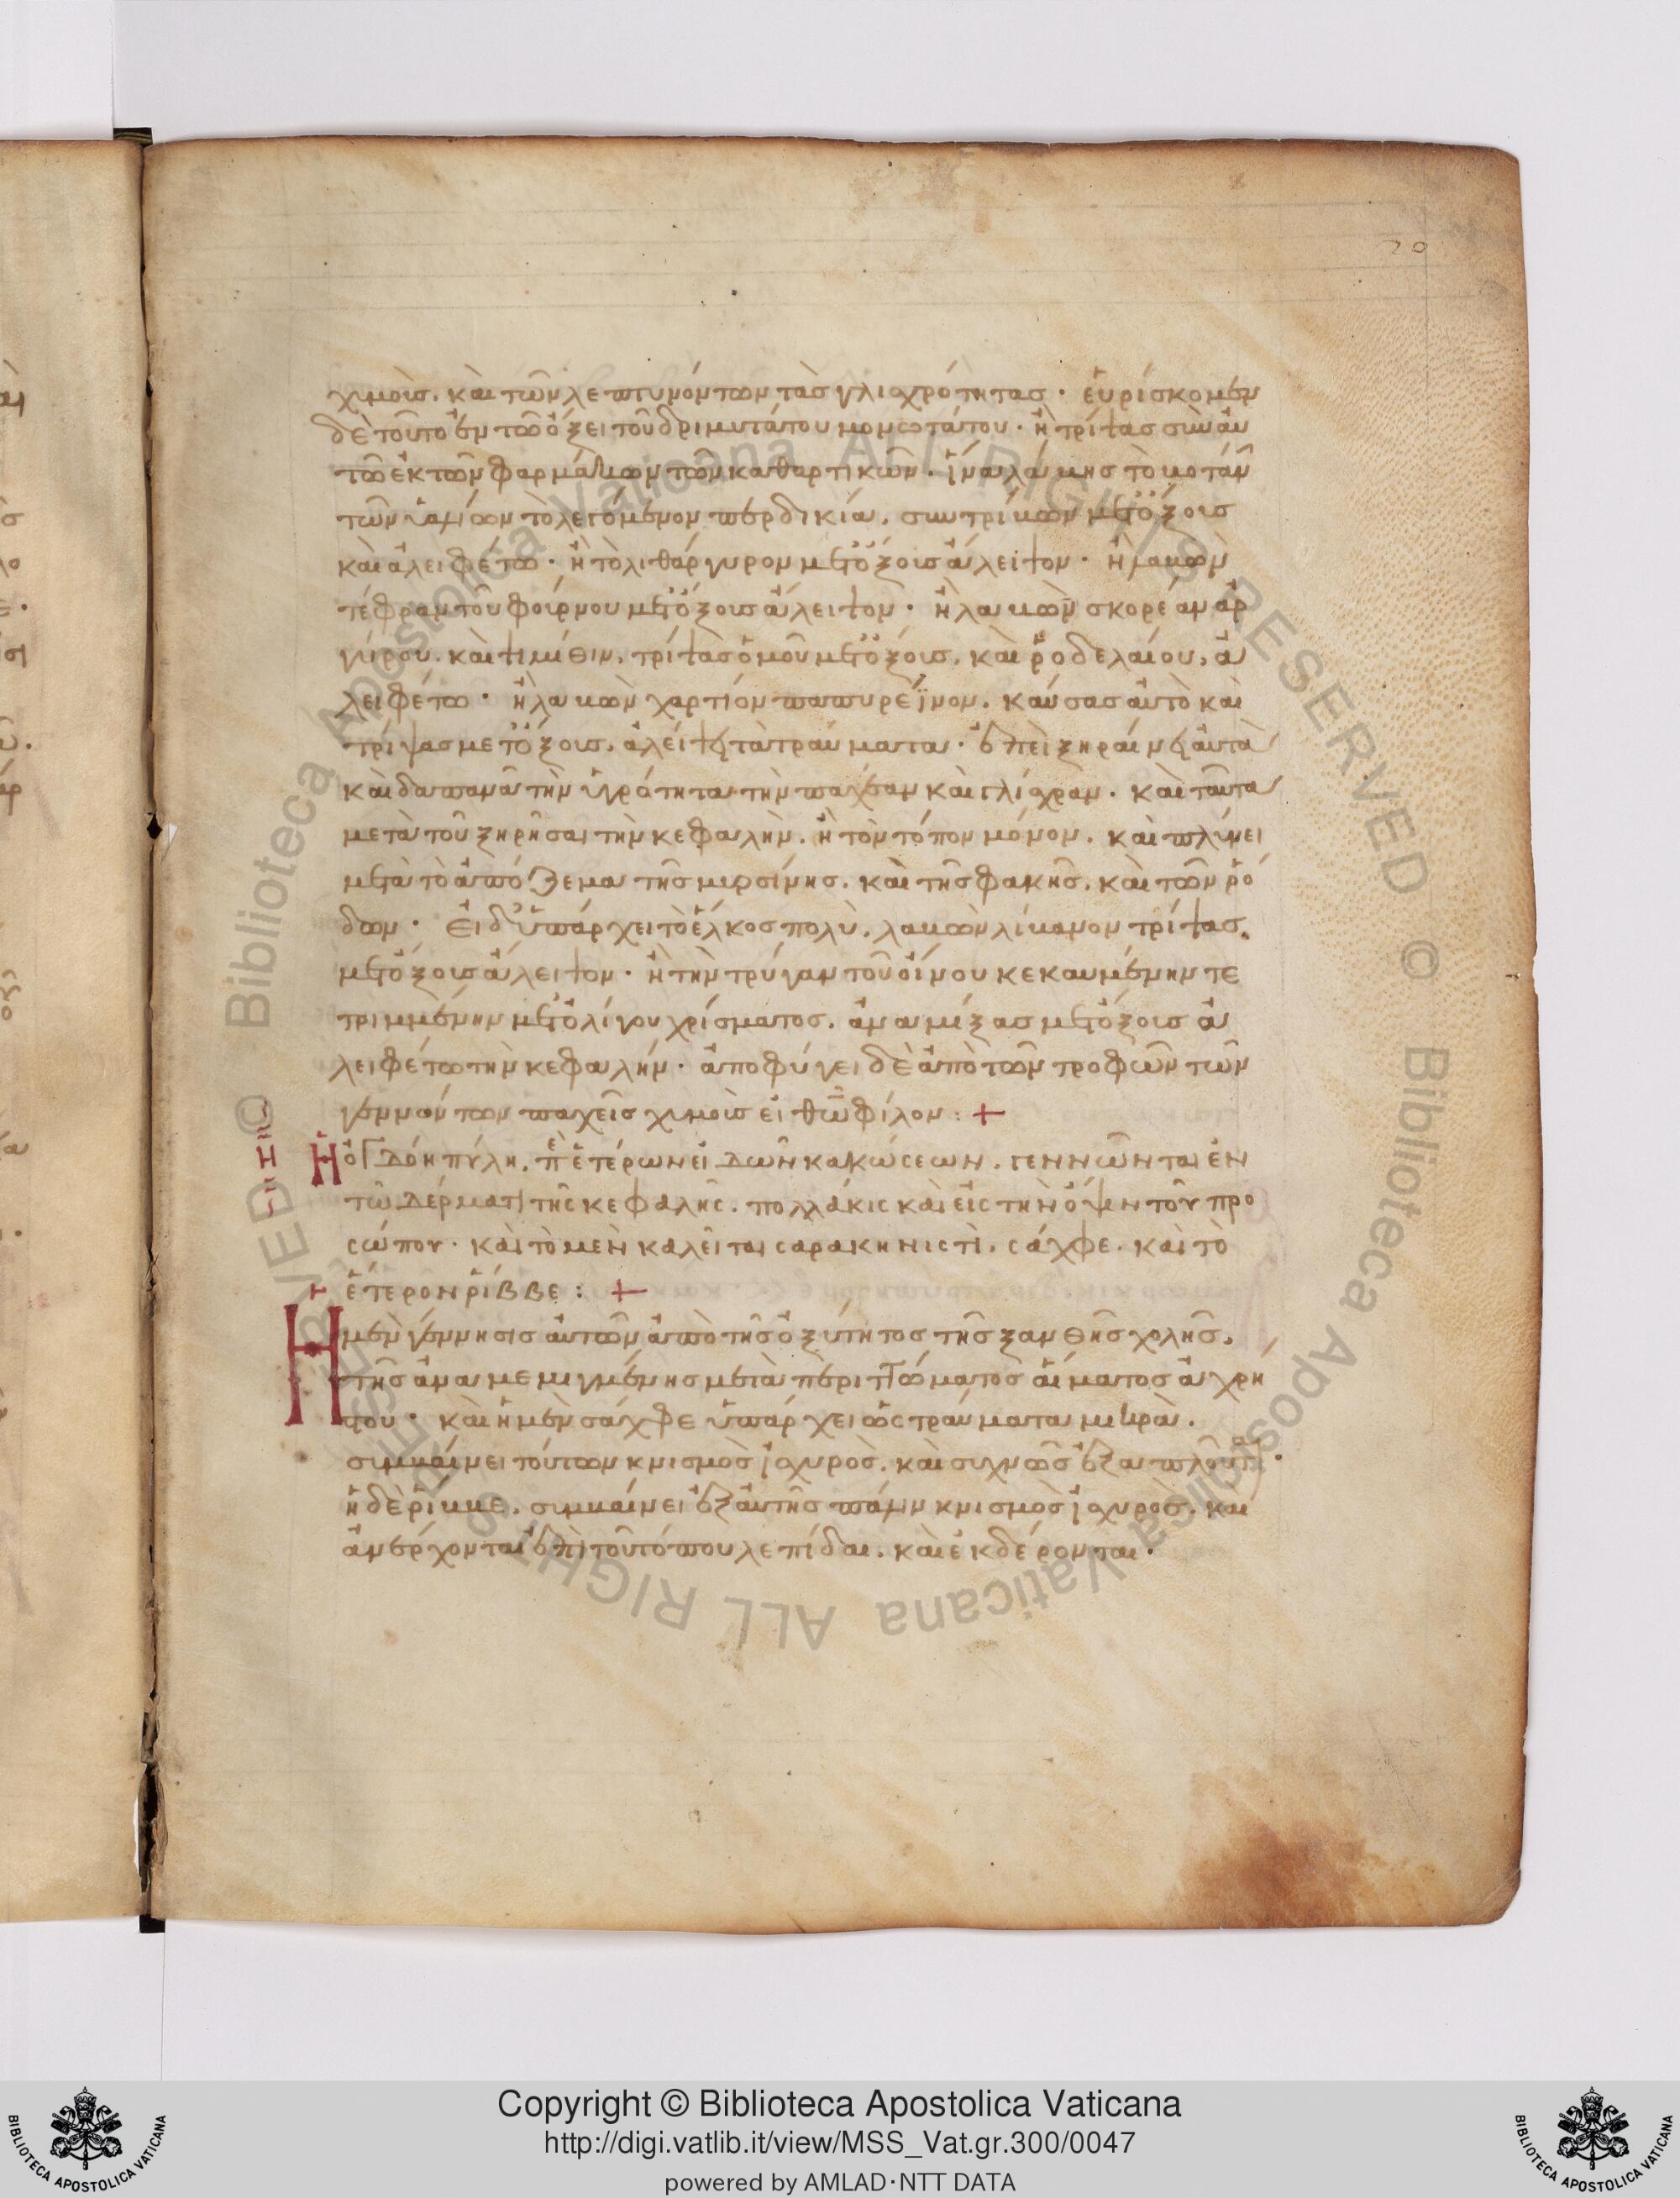 20
χυμοὺς. καὶ τῶν λεπτυνόντων τὰς γλισχρότητας · εὑρίσκομεν
δὲ τοῦτο ἐν τῶ ὄξει τοῦ δριμυτάτου μονωτάτου · ἢ τρίψας σὺν αὐ
τῶ ἐκ τῶν φαρμάκων τῶν καθαρτικῶν · ἵνα λάβης τὸ βοτάν
τῶν ὑαλίων τὸ λεγόμενον περδικίν, συντρίβων μετὸ ὄξους
καὶ ἀλειφέτω · ἢ τὸ λιθάργυρον μετ ὄξους ἄλειψον · ἢ λαβὼν
τέφραν τοῦ φούρνου μετ ὄξους ἄλειψον · ἢ λαβὼν σκορέαν ἀρ
γύρου. καὶ ψιμίθιν, τρίψας ὁμοῦ μετ ὄξους, καὶ ῥοδελαίου, ἀ
λειφέτω · ἢ λαβὼν χαρτίον παπυρέϊνον. καύσας αὐτὸ καὶ
τρίψας μετ ὄξους, ἀλείψη τὰ τραύματα · ἐπεὶ ξηραίνη αὐτὰ
καὶ δαπανᾶ τὴν ὑγρότητα τὴν παχέαν καὶ γλίσχραν. καὶ ταῦτα
μετὰ τοῦ ξηρῆσαι τὴν κεφαλὴν. ἢ τὸν τόπον μόνον. καὶ πλύνει
μετὰ τὸ ἀπόζεμα τῆς μυρσίνης. καὶ τῆς φακῆς. καὶ τῶν ῥό
δων · Εἰ δ' ὑπάρχει τὸ ἕλκος πολὺ, λαβὼν λίβανον τρίψας
μετ ὄξους ἄλειψον · ἢ τὴν τρύγαν τοῦ οἴνου κεκαυμένην τε
τριμμένην μετ ὀλίγου χρίσματος. ἀναμίξας μετ ὄξους ἀ
λειφέτω τὴν κεφαλήν · ἀποφύγει δὲ ἀπὸ τῶν τροφῶν τῶν
γεννόντων παχεῖς χυμοὺς εἰ θῶ φίλον : +
Η ὀΓΔόη πύλη. πὲ ἑτέρων εἰΔῶν κακώσεων. γεννῶνται ἐν
τῶ Δέρματι τῆς κεφαλῆς. πολλάκις καὶ εἰς τὴν ὄψιν τοῦ προ
σώπου · καὶ τὸ μὲν καλεῖται σαρακηνιστὶ, σάχφε. καὶ τὸ
ἕτερον ῥίββε : +
Η μὲν γέννησις αὐτῶν ἀπὸ τῆς ὀξύτητος τῆς ξανθῆς χολῆς,
τῆς ἀναμεμιγμένης μετὰ περιττώματος αἵματος ἀχρή
στου · καὶ ἡ μὲν σάχφε ὑπάρχει ὡς τραύματα μικρὰ.
συμβαίνει τούτων κνισμὸς ἰσχυρὸς. καὶ συχνῶς ἐξαπλοῦται ·
ἡ δὲ ῥίββε. συμβαίνει ἐξ αὐτῆς πάλιν κνισμὸς ἰσχυρὸς. καὶ
ἀνέρχονται ἐπὶ τοῦ τόπου λεπίδαι. καὶ ἐκδέρονται ·
Copyright © Biblioteca Apostolica Vaticana
http://digi.vatlib.it/view/MSS_Vat.gr.300/0047
powered by AMLAD·NTT DATA